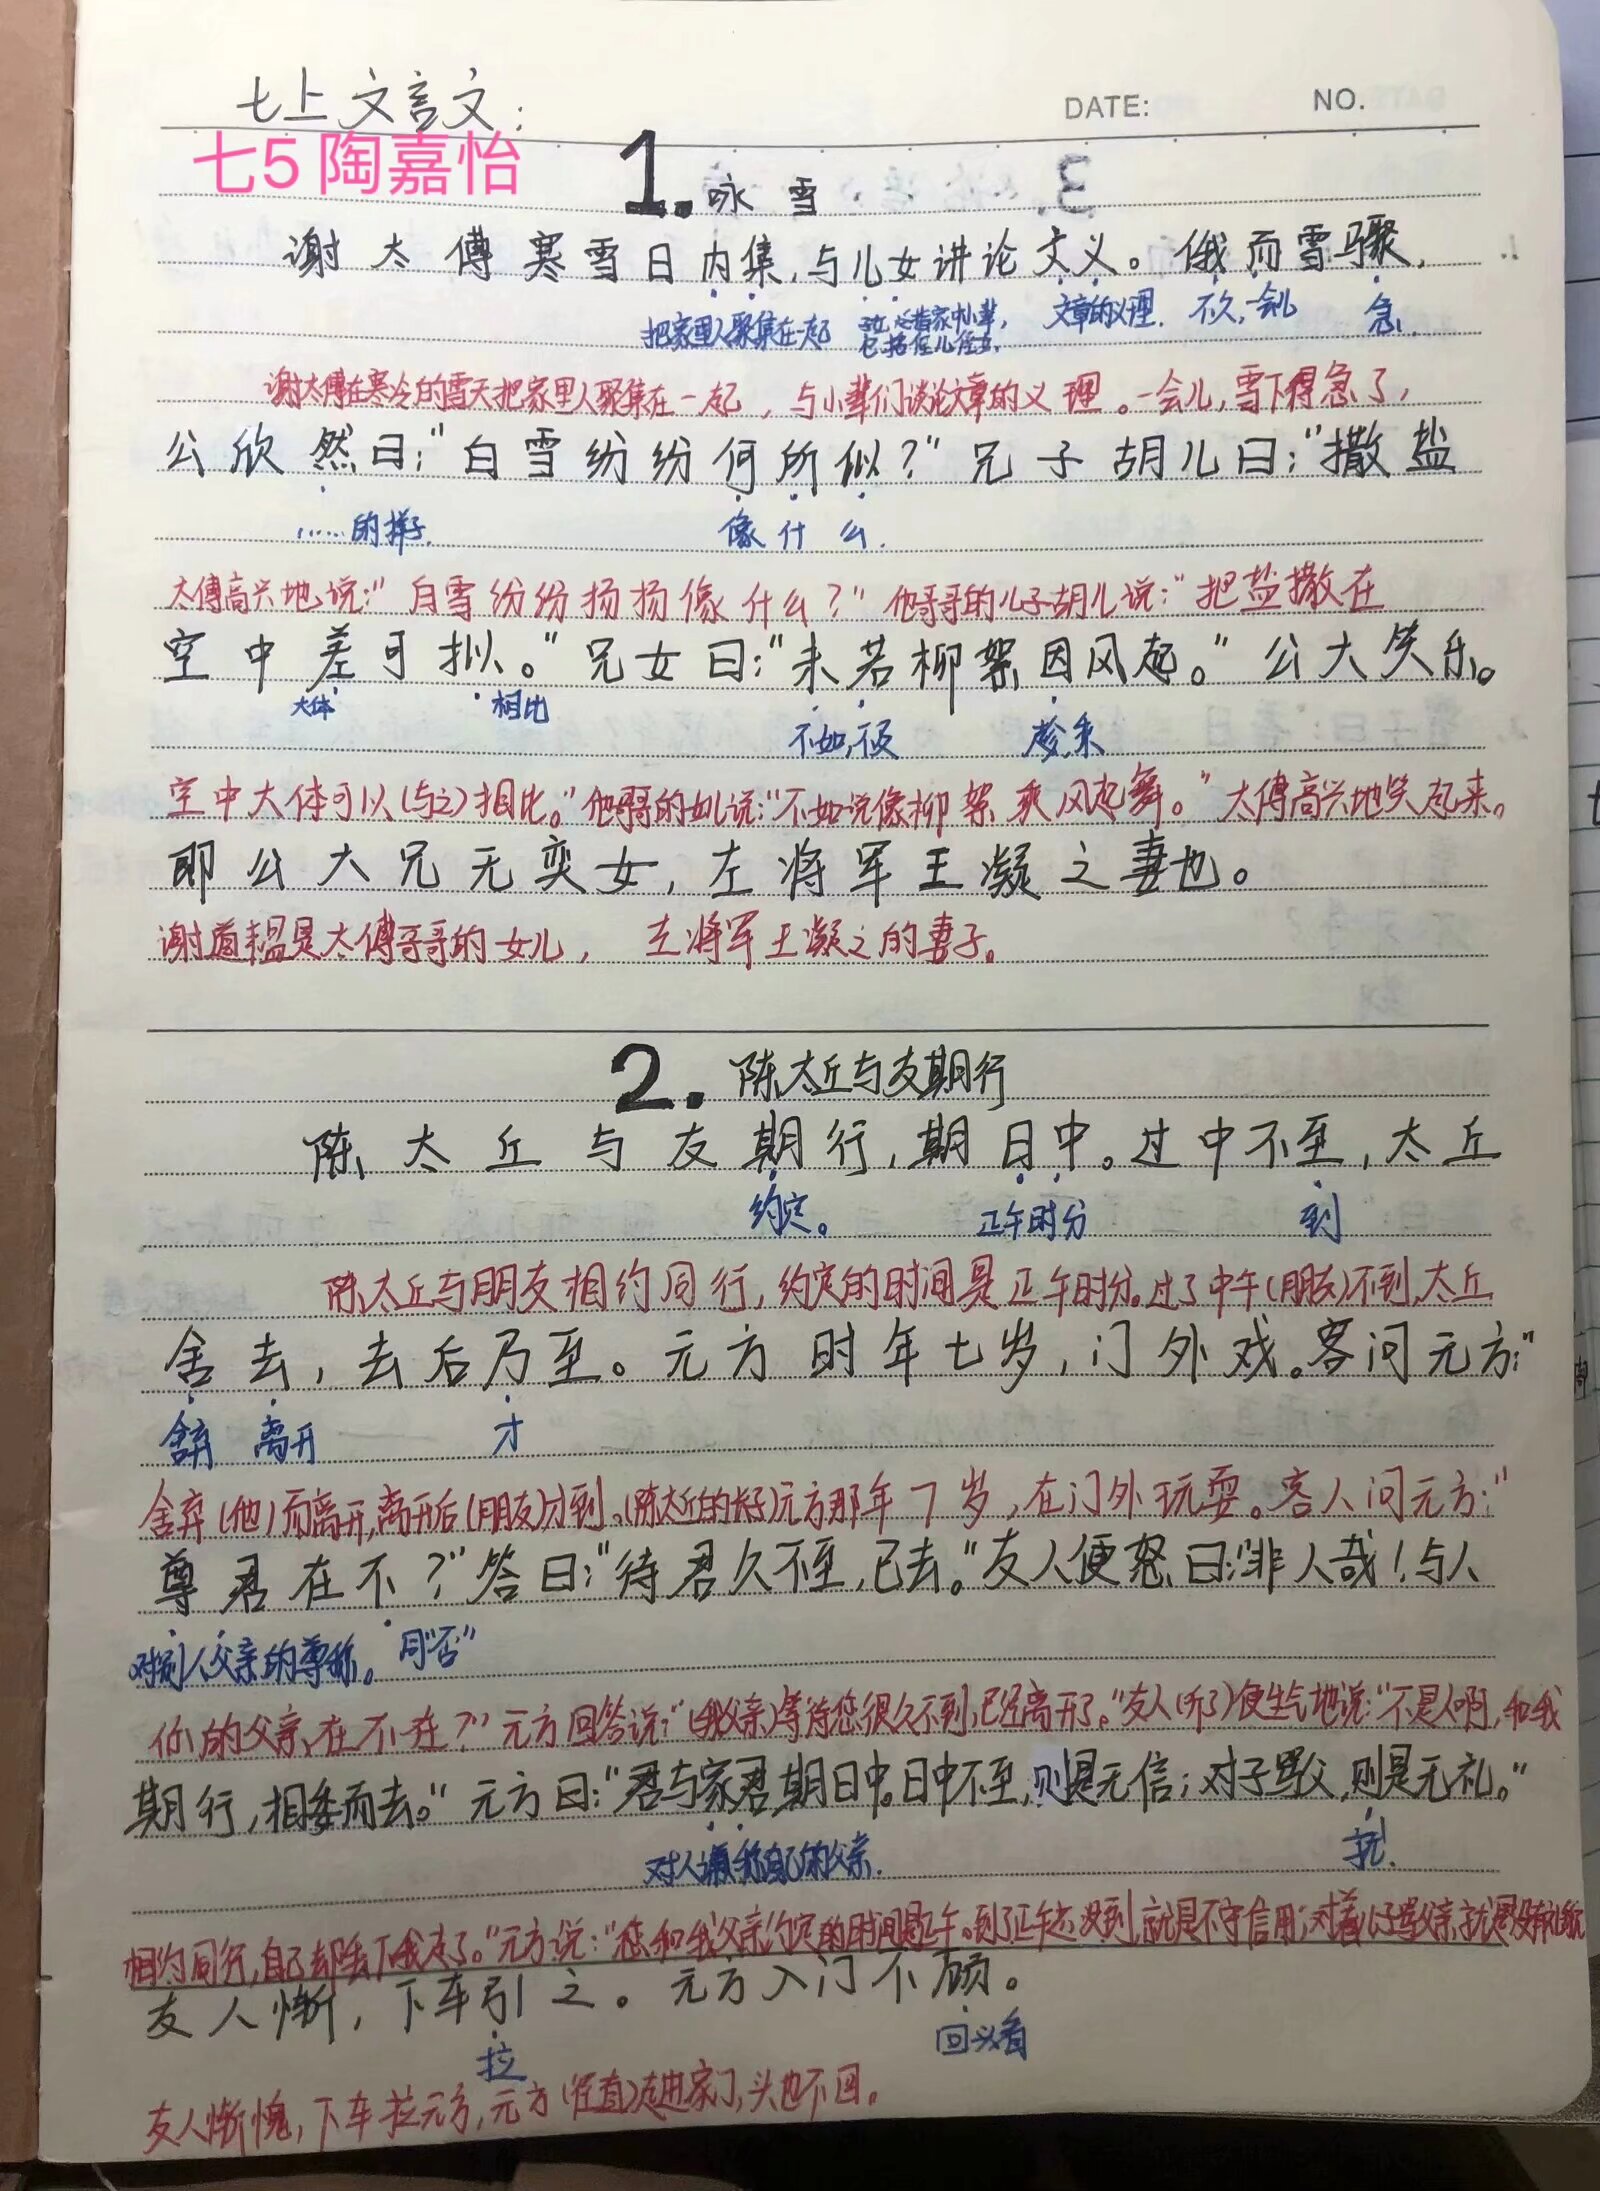 七上文言文:
DATE:
NO.
七5 陶嘉怡
1.咏雪
谢太傅寒雪日内集,与儿女讲论文义。俄而雪骤,
把家里人聚集在一起 子女,泛指家中小辈, 文章的义理. 不久,一会儿 急.
包括侄儿侄女.
谢太傅在寒冷的雪天把家里人聚集在一起,与小辈们谈论文章的义理。一会儿,雪下得急了,
公欣然曰:"白雪纷纷何所似?"兄子胡儿曰:"撒盐
……的样子. 像什么.
太傅高兴地说:"白雪纷纷扬扬像什么?"他哥哥的儿子胡儿说:"把盐撒在
空中差可拟。"兄女曰:"未若柳絮因风起。"公大笑乐。
大体 相比 不如,不及 趁,乘
空中大体可以(与之)相比。"他哥哥的女儿说:"不如说像柳絮乘风起舞。"太傅高兴地笑起来。
即公大兄无奕女,左将军王凝之妻也。
谢道韫是太傅哥哥的女儿,左将军王凝之的妻子。
2.陈太丘与友期行
陈太丘与友期行,期日中。过中不至,太丘
约定。 正午时分 到
陈太丘与朋友相约同行,约定的时间是正午时分。过了中午(朋友)不到,太丘
舍去,去后乃至。元方时年七岁,门外戏。客问元方:"
舍弃 离开 才
舍弃(他)而离开,离开后(朋友)才到。(陈太丘的长子)元方那年7岁,在门外玩耍。客人问元方:"
尊君在不?"答曰:"待君久不至,已去。"友人便怒曰:"非人哉!与人
对别人父亲的尊称。 同"否"
你的父亲在不在?"元方回答说:"(我父亲)等待您很久不到,已经离开了。"友人(听了)便生气地说:"不是人啊,和我
期行,相委而去。"元方曰:"君与家君期日中。日中不至,则是无信;对子骂父,则是无礼。"
对人谦称自己的父亲. 就.
相约同行,自己却丢下我走了。"元方说:"您和我父亲约定的时间是正午。到了正午还没到,就是不守信用;对着儿子骂父亲,就是没有礼貌
友人惭,下车引之。元方入门不顾。
拉 回头看
友人惭愧,下车拉元方,元方(径直)走进家门,头也不回。